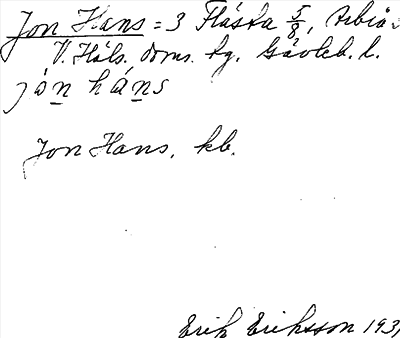 Jon Hans = 3 Flästa 5/8, Arbrå s
V. Häls. doms. tg. Gävleb. l.
jòn háns
Jon Hans, kb.
Erik Eriksson 193